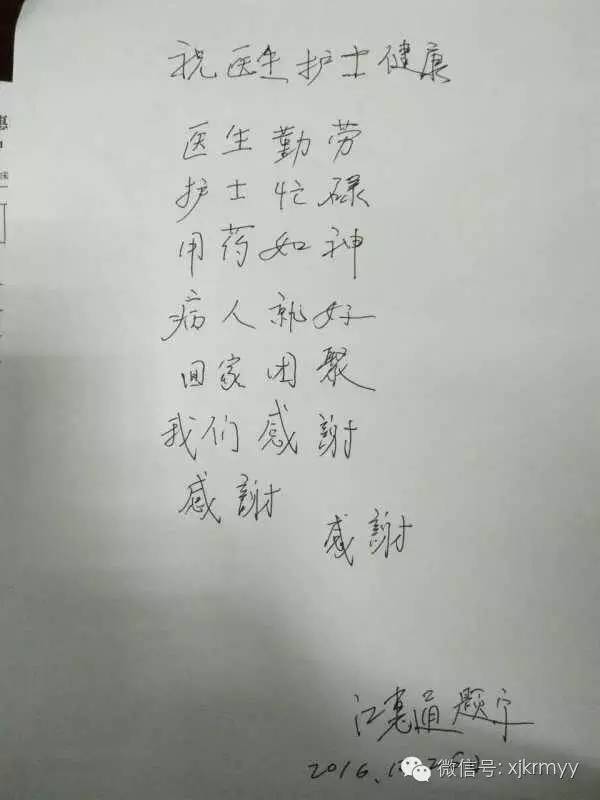 祝医生护士健康
医生勤劳
护士忙碌
用药如神
病人就好
回家团聚
我们感謝
感謝
感謝
江惠通题字
2016.1
微信号: xjkrmyy